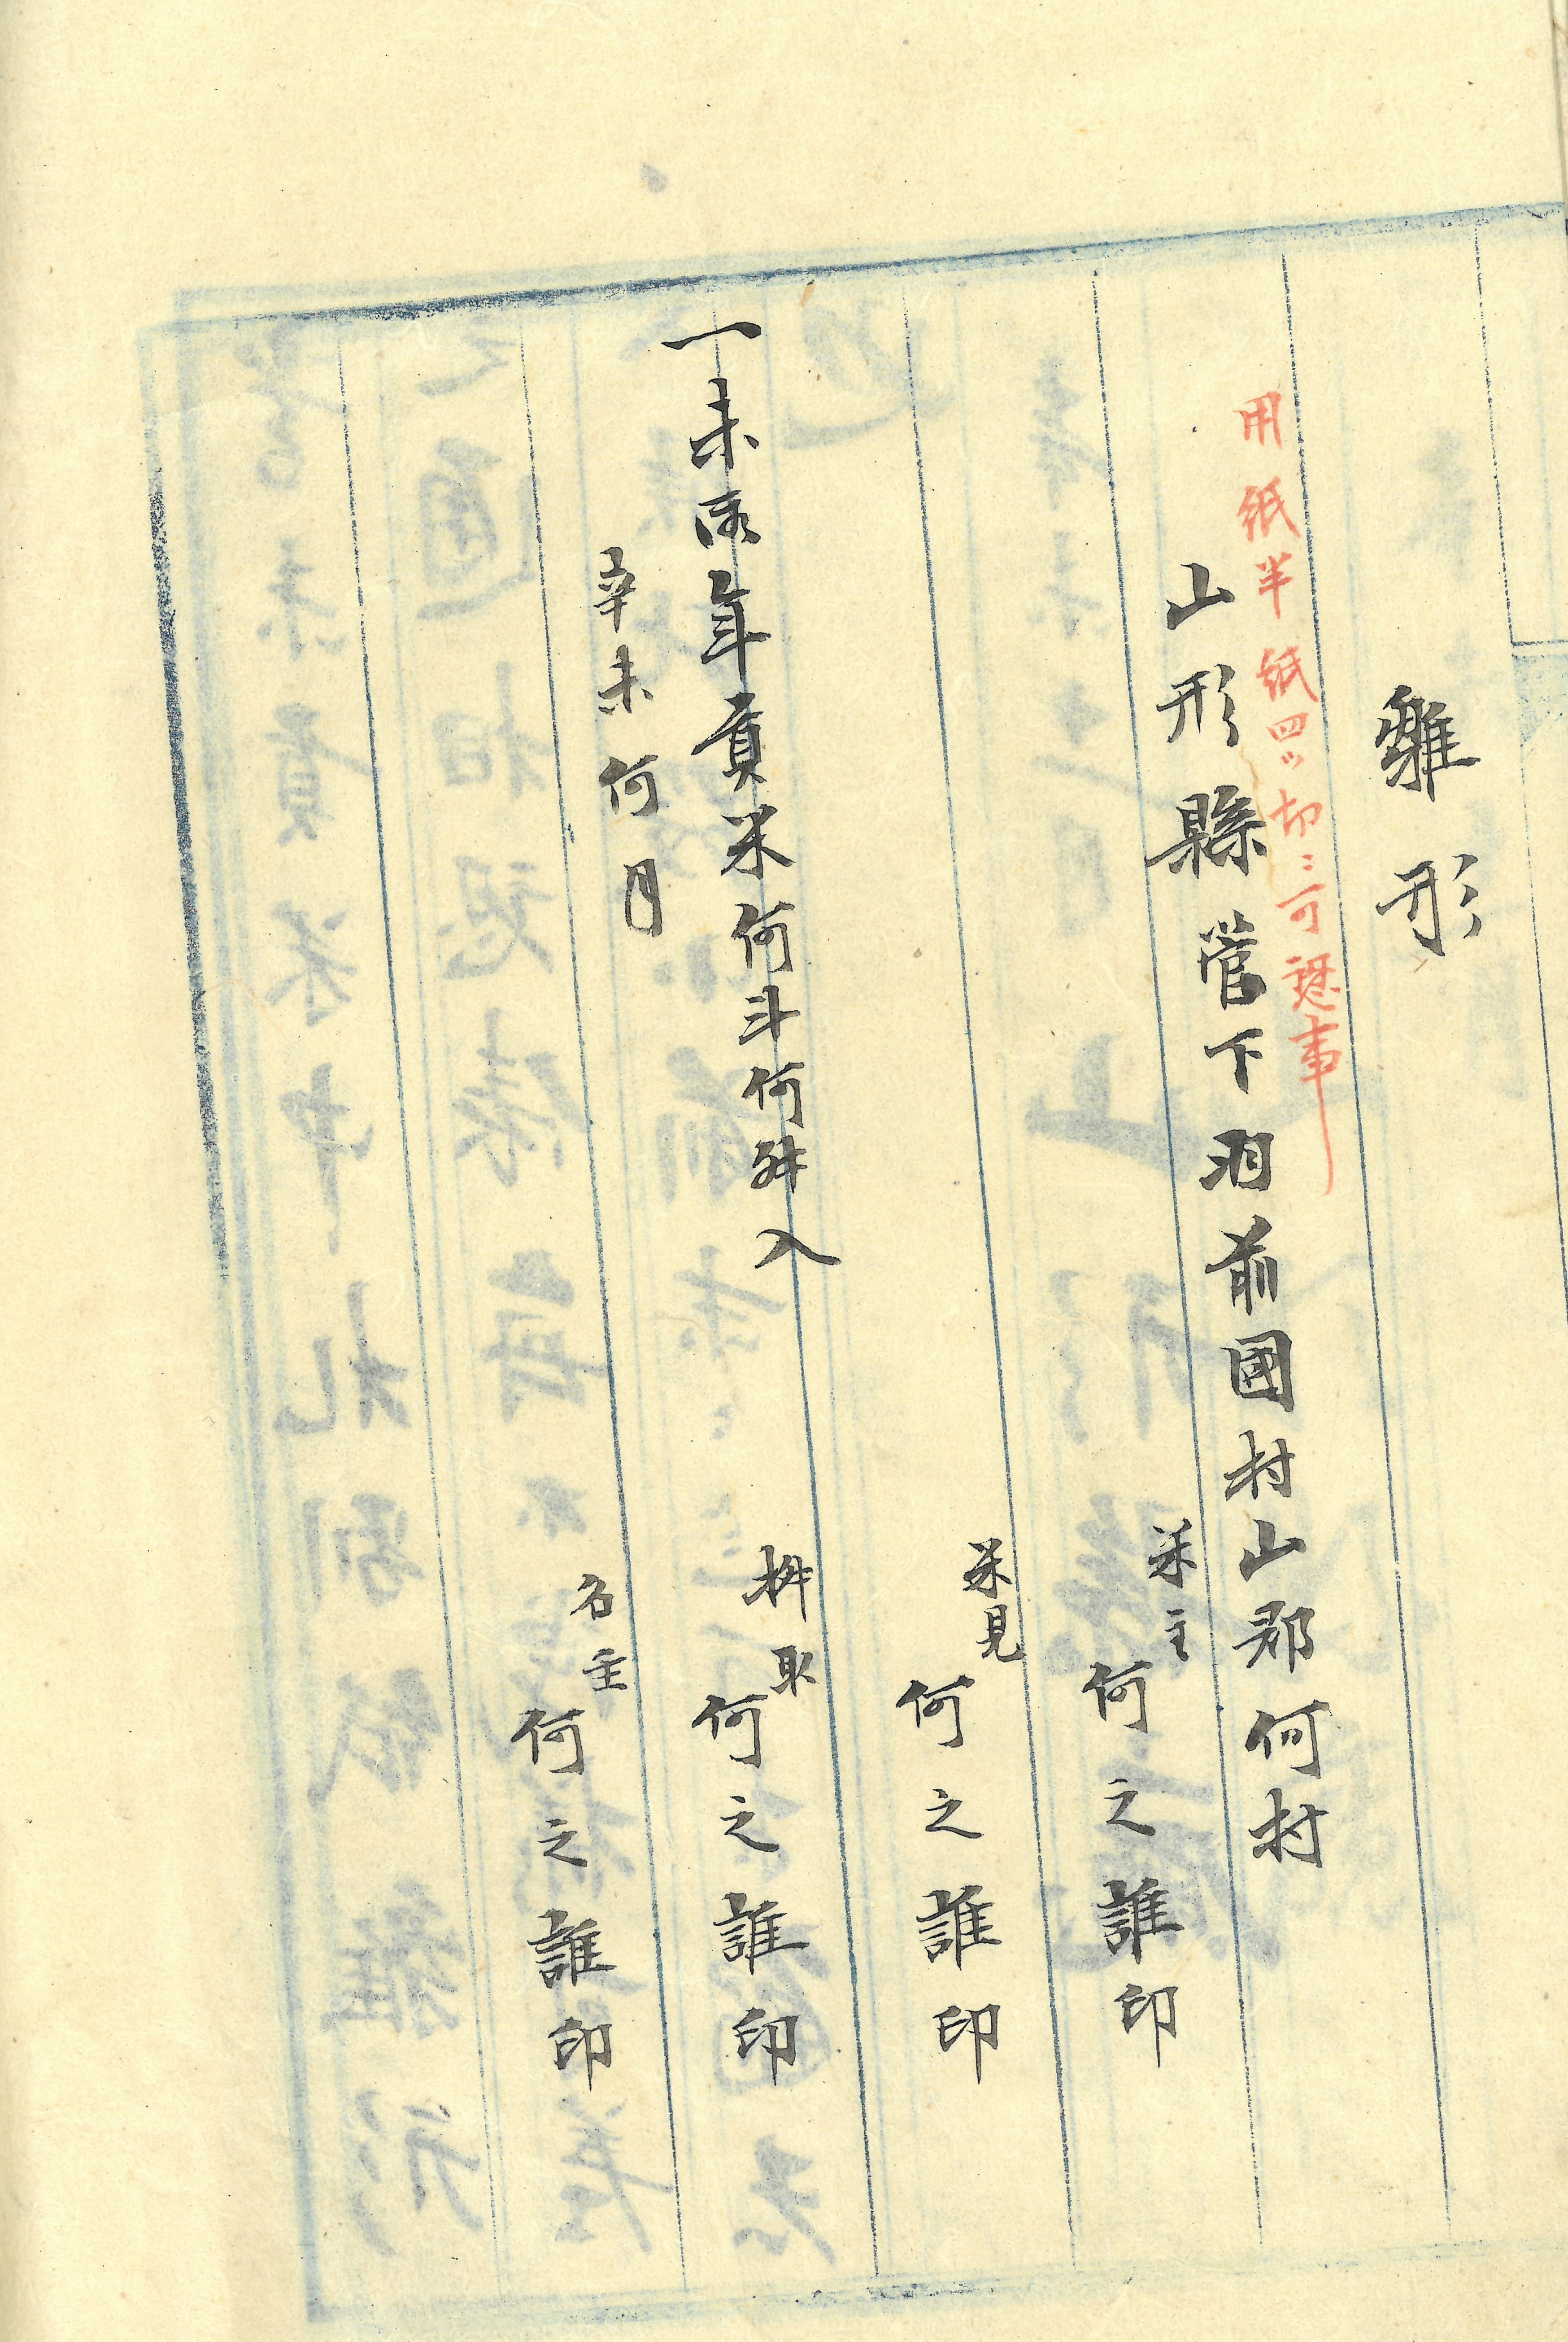 雛形
用紙半紙四ツ切ニ可認事
山形縣管下羽前國村山郡何村
米主 何之誰印
米見 何之誰印
一未御年貢米何斗何舛入
桝取 何之誰印
辛未何月
名主 何之誰印